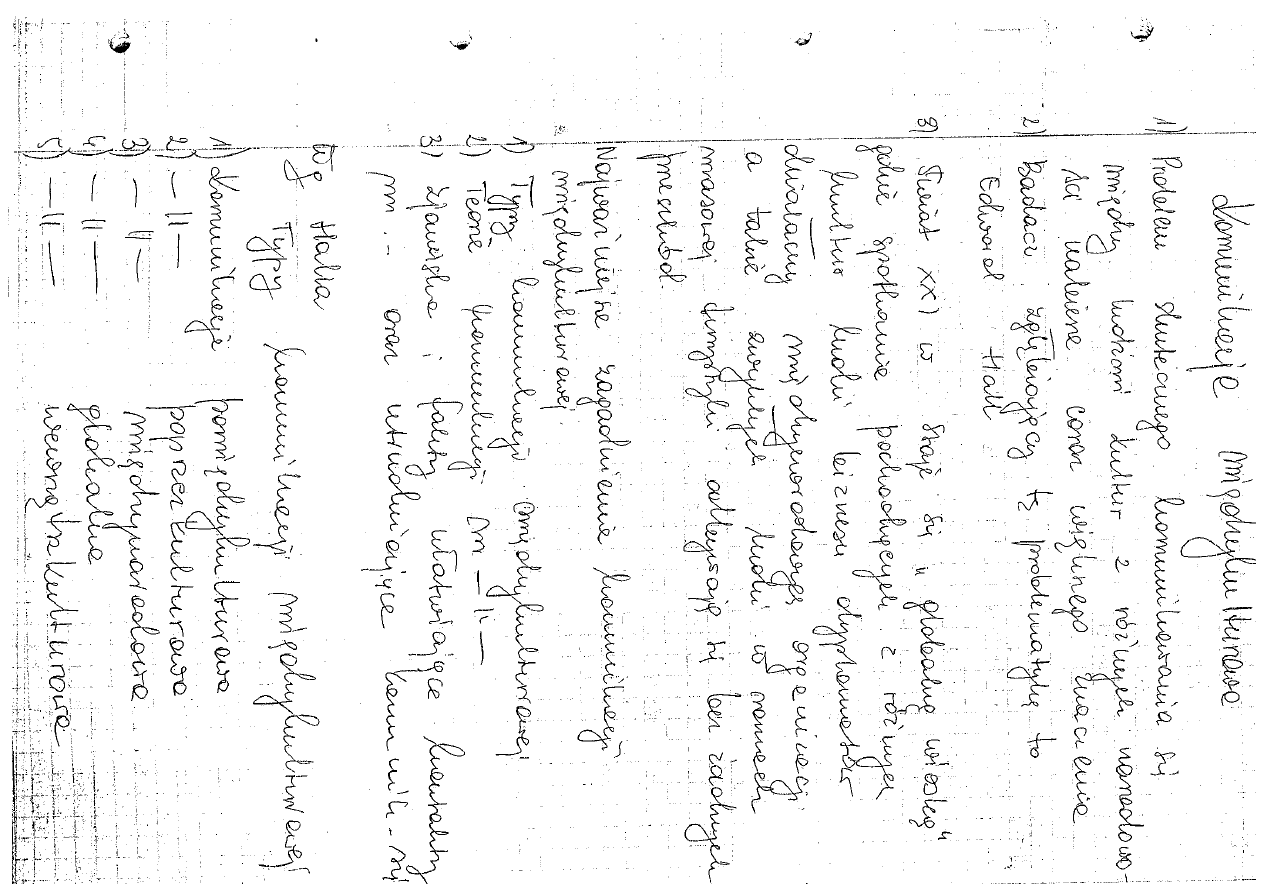 Komunikacja międzykulturowa
1) Problem skutecznego komunikowania się
między ludźmi kultur z różnych narodowo-
ści nabiera coraz większego znaczenia
2) Badacz zgłębiający tą problematykę to
Edward Hall
3) Świat XXI w staje się „globalną wioską"
gdzie spotkanie pochodzących z różnych
kultur ludzi biznesu dyplomatów
działaczy międzynarodowych organizacji
a także zwykłych ludzi w ramach
masowej turystyki odbywają się bez żadnych
przeszkód.
Najważniejsze zagadnienia komunikacji
międzykulturowej.
1) Typy komunikacji międzykulturowej
2) Teorie komunikacji m –||–
3) zjawiska i fakty ułatwiające kontakty
m.- oraz utrudniające komunik-się
Wg Halla
Typy komunikacji międzykulturowej
1) komunikacja pomiędzykulturowa
2) –||– poprzezkulturowa
3) –||– międzynarodowa
4) –||– globalna
5) –||– wewnątrzkulturowa